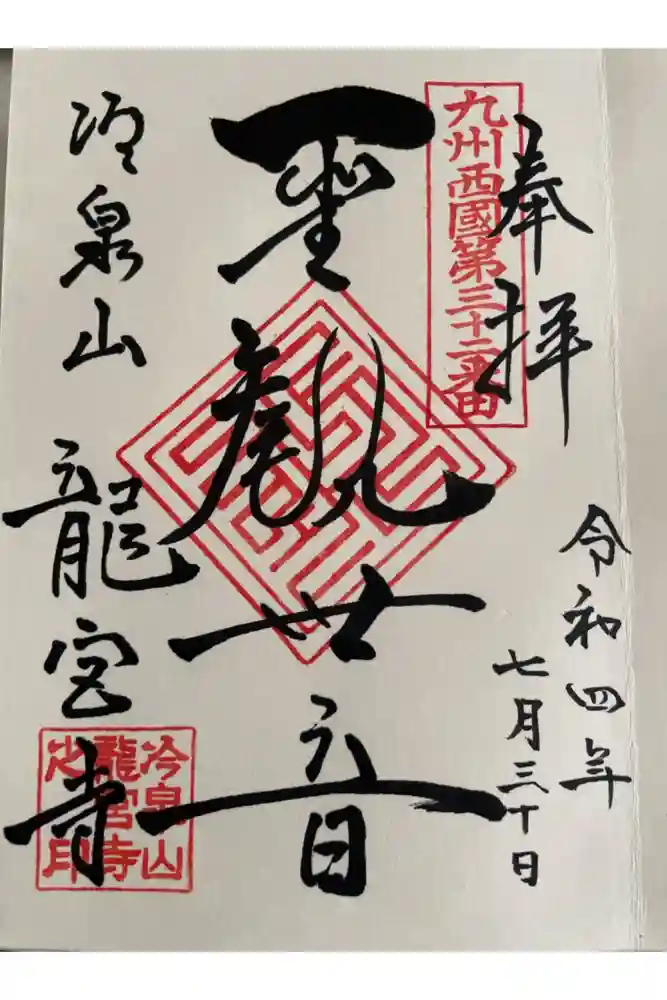 奉拝
令和四年
七月三十日
九州西國第三十二番
聖観世音
冷泉山
龍宮寺
冷泉山
龍宮寺
之印